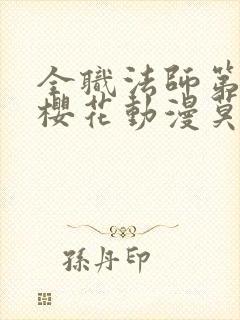 全職法師第
櫻花動漫莫
孫丹印